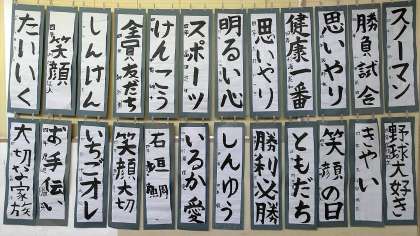 スノーマン
勝負試合
思いやり
健康一番
思いやり
明るい心
スポーツ
けんこう
全員友だち
しんけん
笑顔
たいいく
野球大好き
きゃい
笑顔の日
ともだち
勝利必勝
しんゆう
いるか愛
石垣鯛
笑顔大切
いちごオレ
お手伝い
大切な家族